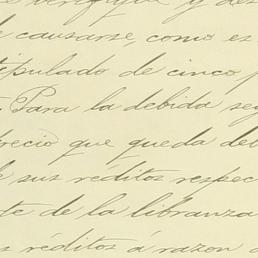 y
causarse, como es
tipulado de cinco p
Para la debida seg
precio que queda deb
sus réditos respec
te de la libranza
s réditos á razon d